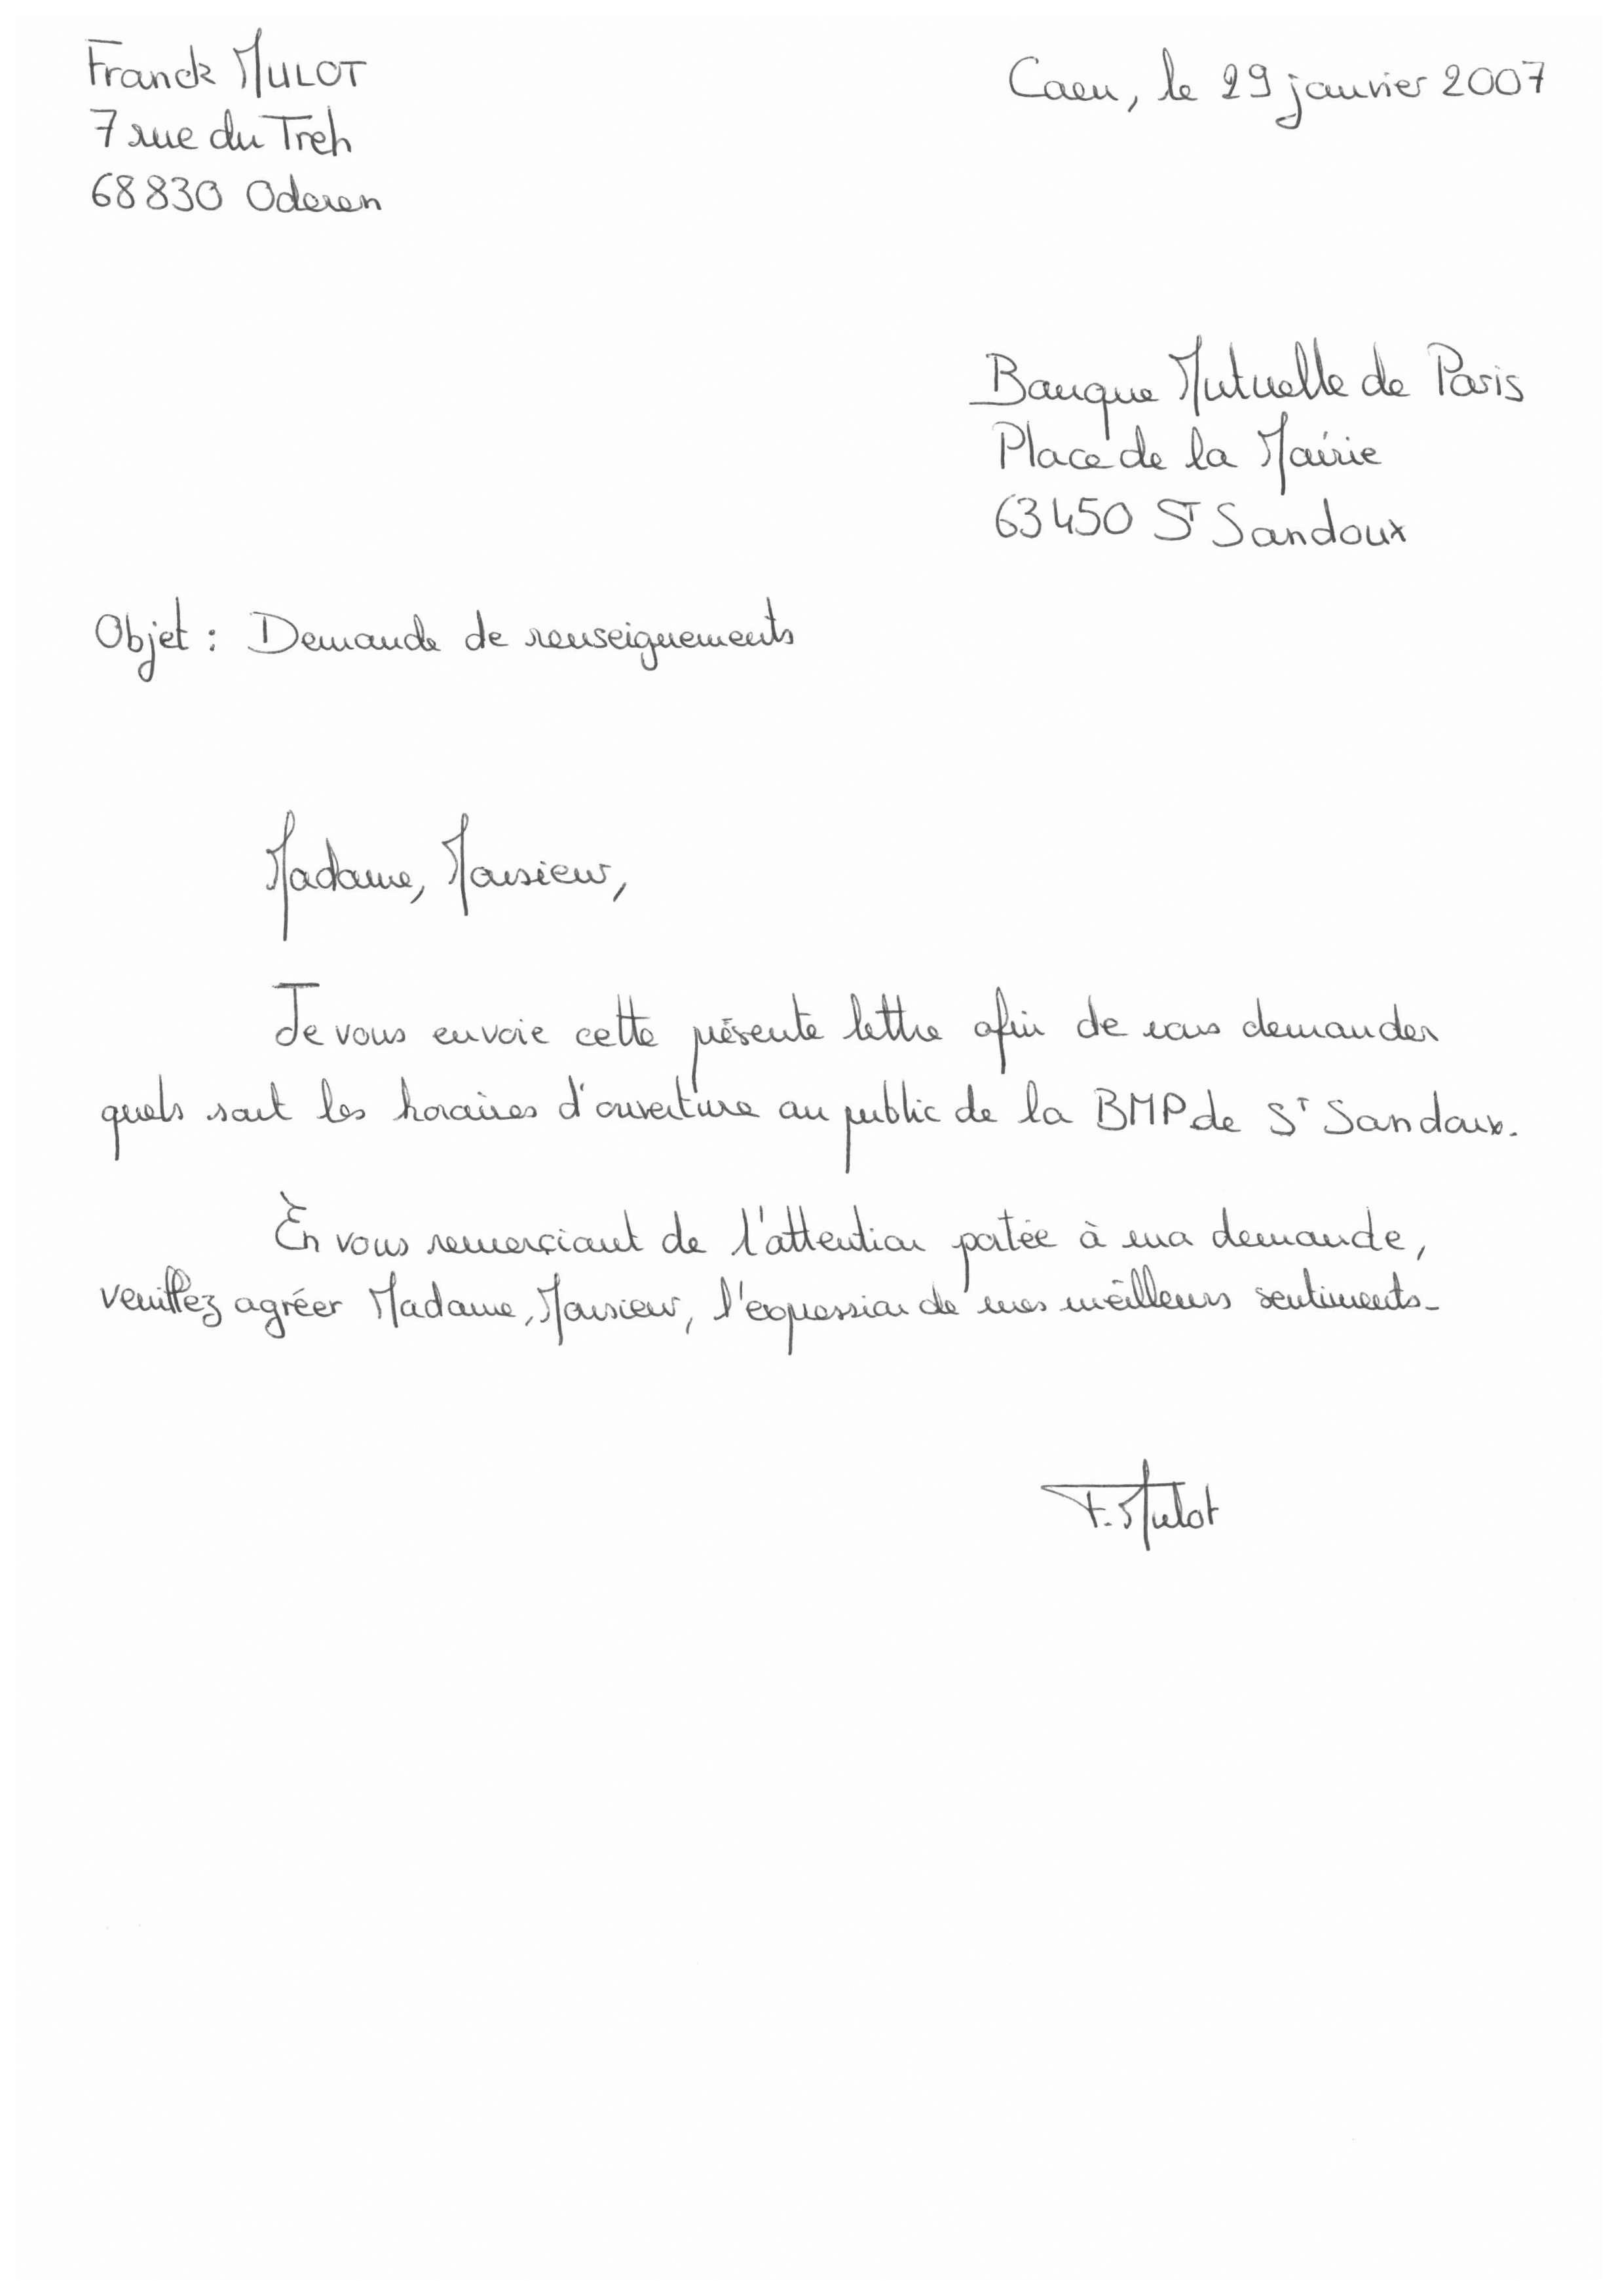 Franck MULOT
7 rue du Treh
68830 Oderen
Caen, le 29 janvier 2007
Banque Mutuelle de Paris
Place de la Mairie
63450 St Sandoux
Objet : Demande de renseignements
Madame, Monsieur,
Je vous envoie cette présente lettre afin de vous demander
quels sont les horaires d'ouverture au public de la BMP de St Sandoux.
En vous remerçiant de l'attention portée à ma demande,
veuillez agréer Madame, Monsieur, l'expression de mes meilleurs sentiments.
F. Mulot